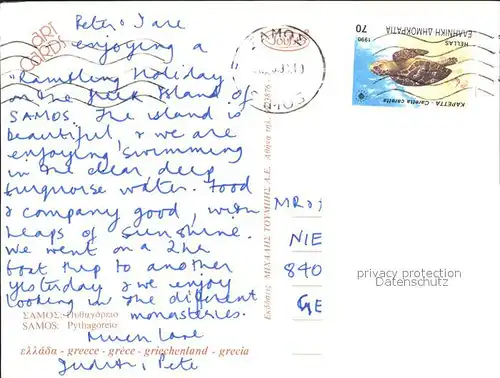 Peter & I are
enjoying a
"Rambling Holiday"
on the Greek Island of
SAMOS. The island is
beautiful, & we are
enjoying swimming
in the clear, deep
turquoise water. Food
& company good, with
heaps of sunshine.
We went on a 2 hr
boat trip to another
yesterday & we enjoy
looking in the different
monasteries.
Much Love
Judith, Pete
ART
CARDS
ΣΑΜΟΣ: Πυθαγόρειο
SAMOS: Pythagoreio
ελλάδα - greece - grèce - griechenland - grecia
Εκδόσεις ΜΙΧΑΛΗΣ ΤΟΥΜΠΗΣ Α.Ε. Αθήνα
ΣΑΜΟΣ
SAMOS
70
1990
ΕΛΛΗΝΙΚΗ ΔΗΜΟΚΡΑΤΙΑ
HELLAS
ΚΑΡΕΤΤΑ - Caretta caretta
MR &
NIE
840
GE
privacy protection
Datenschutz